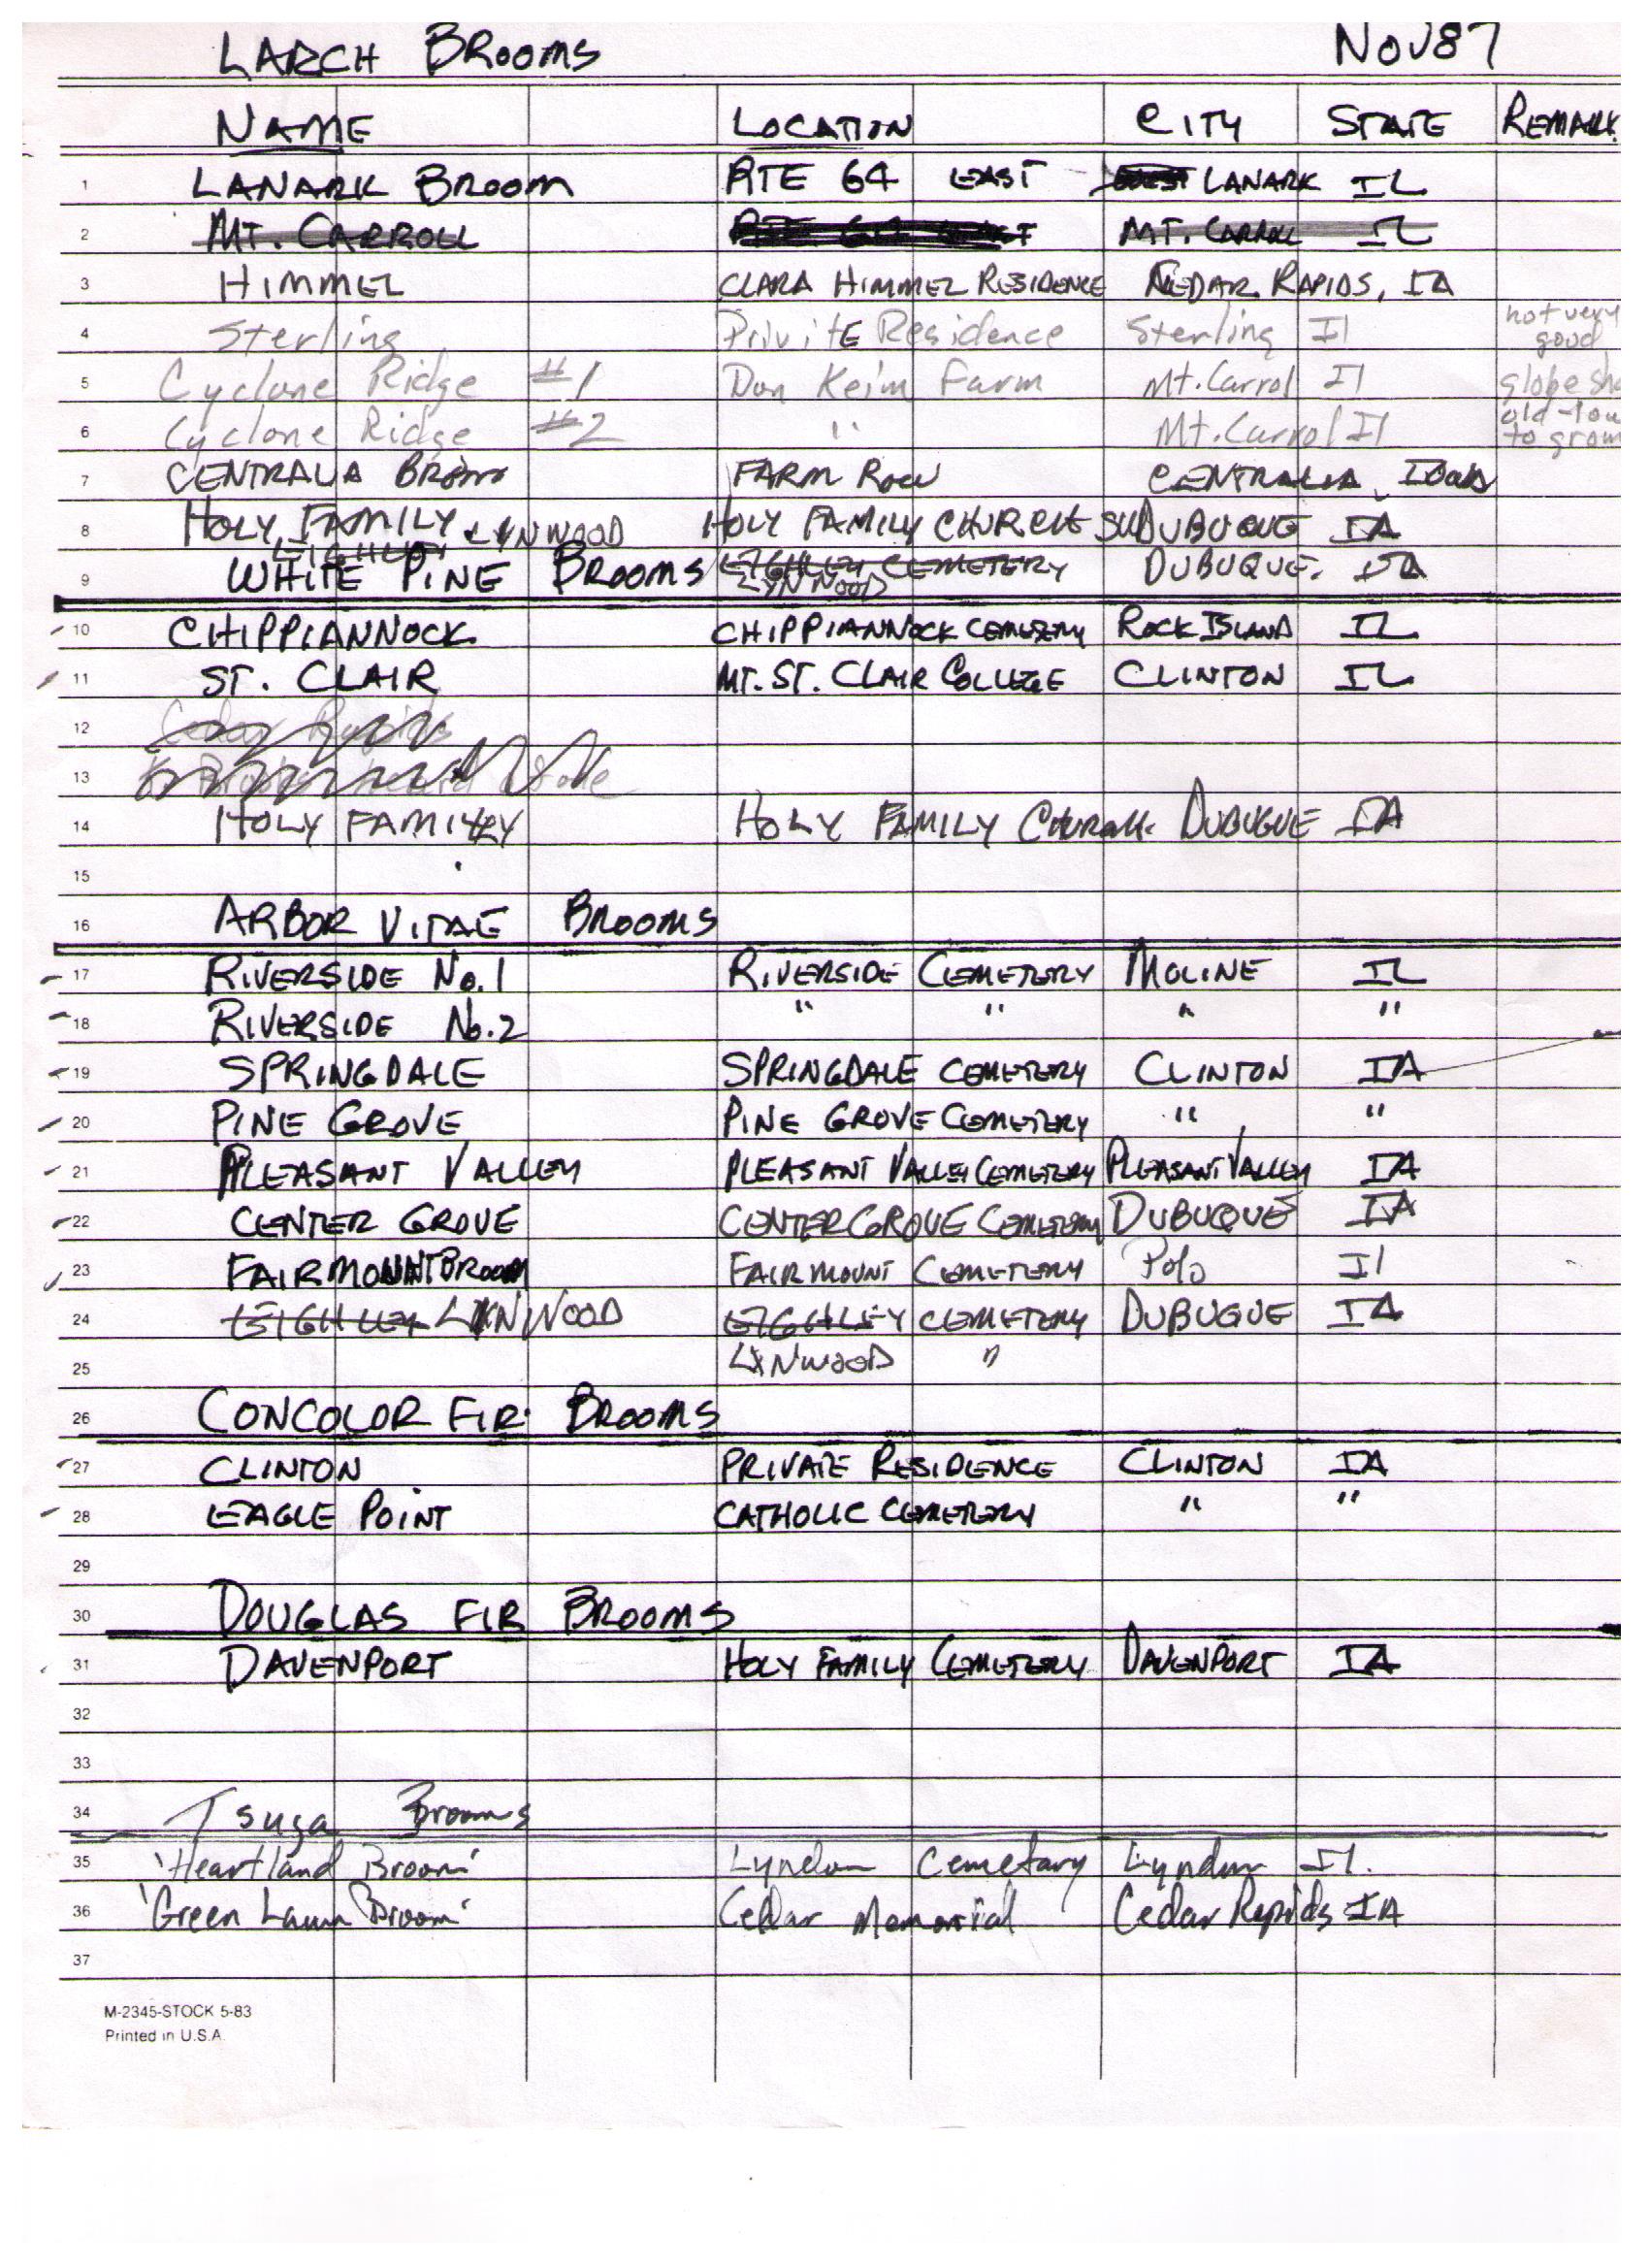 LARCH BROOMS NOV 87
NAME LOCATION CITY STATE REMARK
1 LANARK BROOM RTE 64 EAST LANARK IL
2 MT. CARROLL MT. CARROLL IL
3 HIMMEL CLARA HIMMEL RESIDENCE CEDAR RAPIDS, IA
4 Sterling PrivitE Residence Sterling Il not very good
5 Cyclone Ridge #1 Don Keim Farm Mt. Carrol Il globe sha
6 Cyclone Ridge #2 " Mt. Carrol Il old-
to grow
7 CENTRALIA BROOM FARM ROW CENTRALIA, IOWA
8 HOLY FAMILY HOLY FAMILY CHURCH DUBUQUE IA
LEIGHLEY LYNWOOD
9 WHITE PINE BROOMS LEIGHLEY CEMETERY DUBUQUE. IA
LYNWOOD
10 CHIPPIANNOCK CHIPPIANNOCK CEMETERY ROCK ISLAND IL
11 ST. CLAIR MT. ST. CLAIR COLLEGE CLINTON IL
12 Cedar Rapids
13
14 HOLY FAMILY HOLY FAMILY CHURCH DUBUGUE IA
15
16 ARBOR VITAE BROOMS
17 RIVERSIDE No. 1 RIVERSIDE CEMETERY MOLINE IL
18 RIVERSIDE No. 2 " " " "
19 SPRINGDALE SPRINGDALE CEMETERY CLINTON IA
20 PINE GROVE PINE GROVE CEMETERY " "
21 PLEASANT VALLEY PLEASANT VALLEY CEMETERY PLEASANT VALLEY IA
22 CENTER GROVE CENTER GROVE CEMETERY DUBUQUE IA
23 FAIRMOUNT BROOM FAIRMOUNT CEMETERY Polo Il
24 LEIGHLEY LYNWOOD LEIGHLEY CEMETERY DUBUGUE IA
25 LYNWOOD "
26 CONCOLOR FIR BROOMS
27 CLINTON PRIVATE RESIDENCE CLINTON IA
28 EAGLE POINT CATHOLIC CEMETERY " "
29
30 DOUGLAS FIR BROOMS
31 DAVENPORT HOLY FAMILY CEMETERY DAVENPORT IA
32
33
34 Tsuga Brooms
35 'Heartland Broom' Lyndon Cemetary Lyndon Il.
36 'Green Lawn Broom' Cedar Memorial Cedar Rapids IA
37
M-2345-STOCK 5-83
Printed in U.S.A.